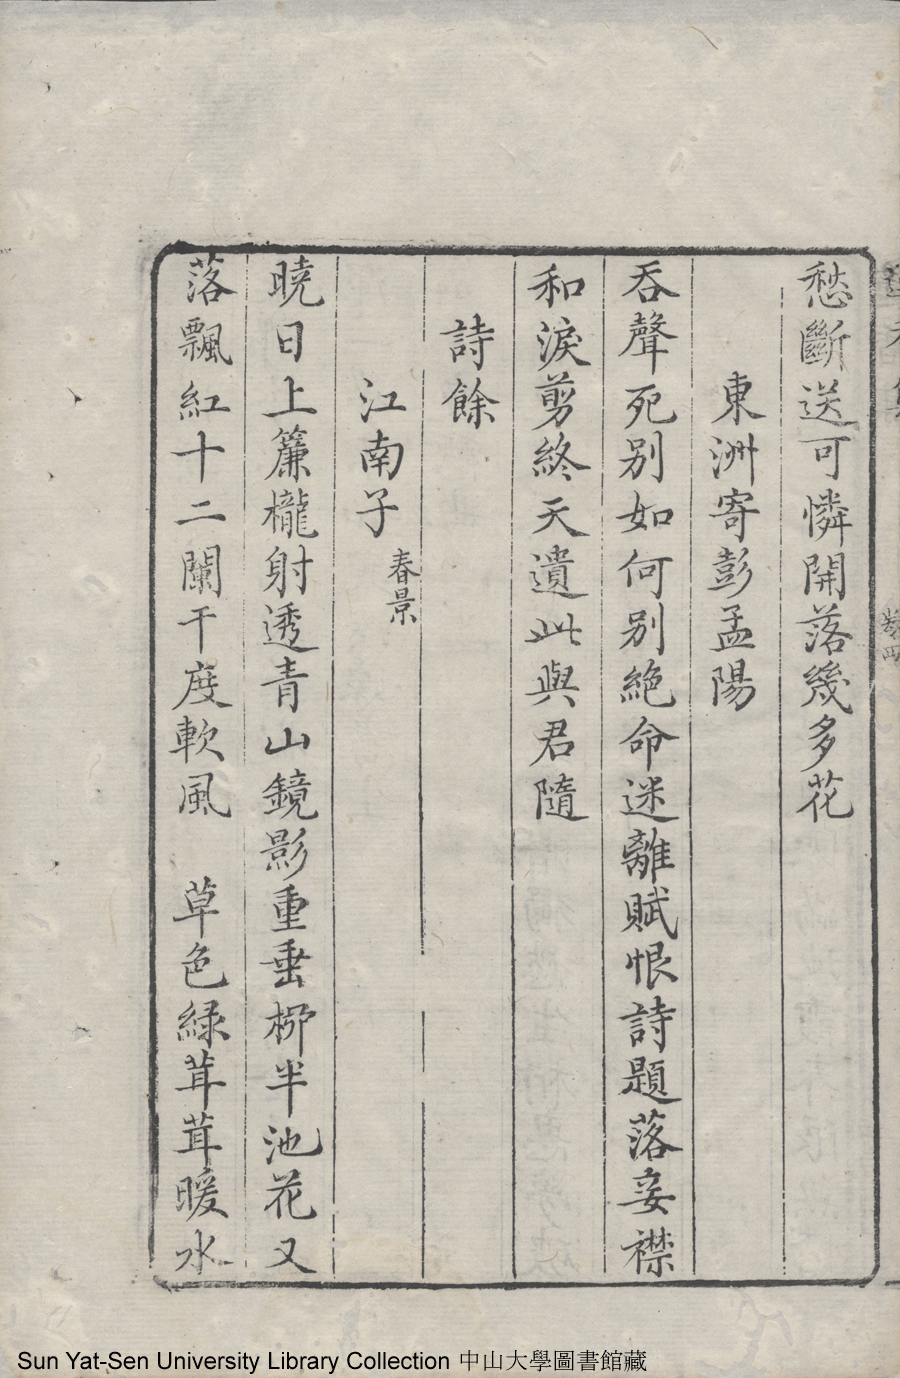 愁斷送可憐開落幾多花
東洲寄彭孟陽
吞聲死別如何別絕命迷離賦恨詩題落妾襟
和淚剪終天遺此與君隨
詩餘
江南子 春景
曉日上簾櫳射透青山鏡影重垂桺半池花又
落飄紅十二闌干度軟風 草色緑茸茸暖水
Sun Yat-Sen University Library Collection 中山大學圖書館藏